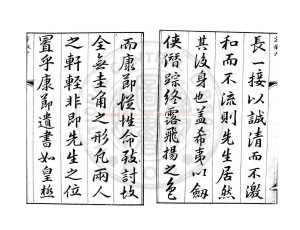 長一接以誠清而不激
和而不流則先生居然
其後身也蓋希夷以劔
俠潛踪終露飛揚之色
而康節從性命孜討故
全無圭角之形凢兩人
之軒輊非即先生之位
置乎康節遺書如皇極